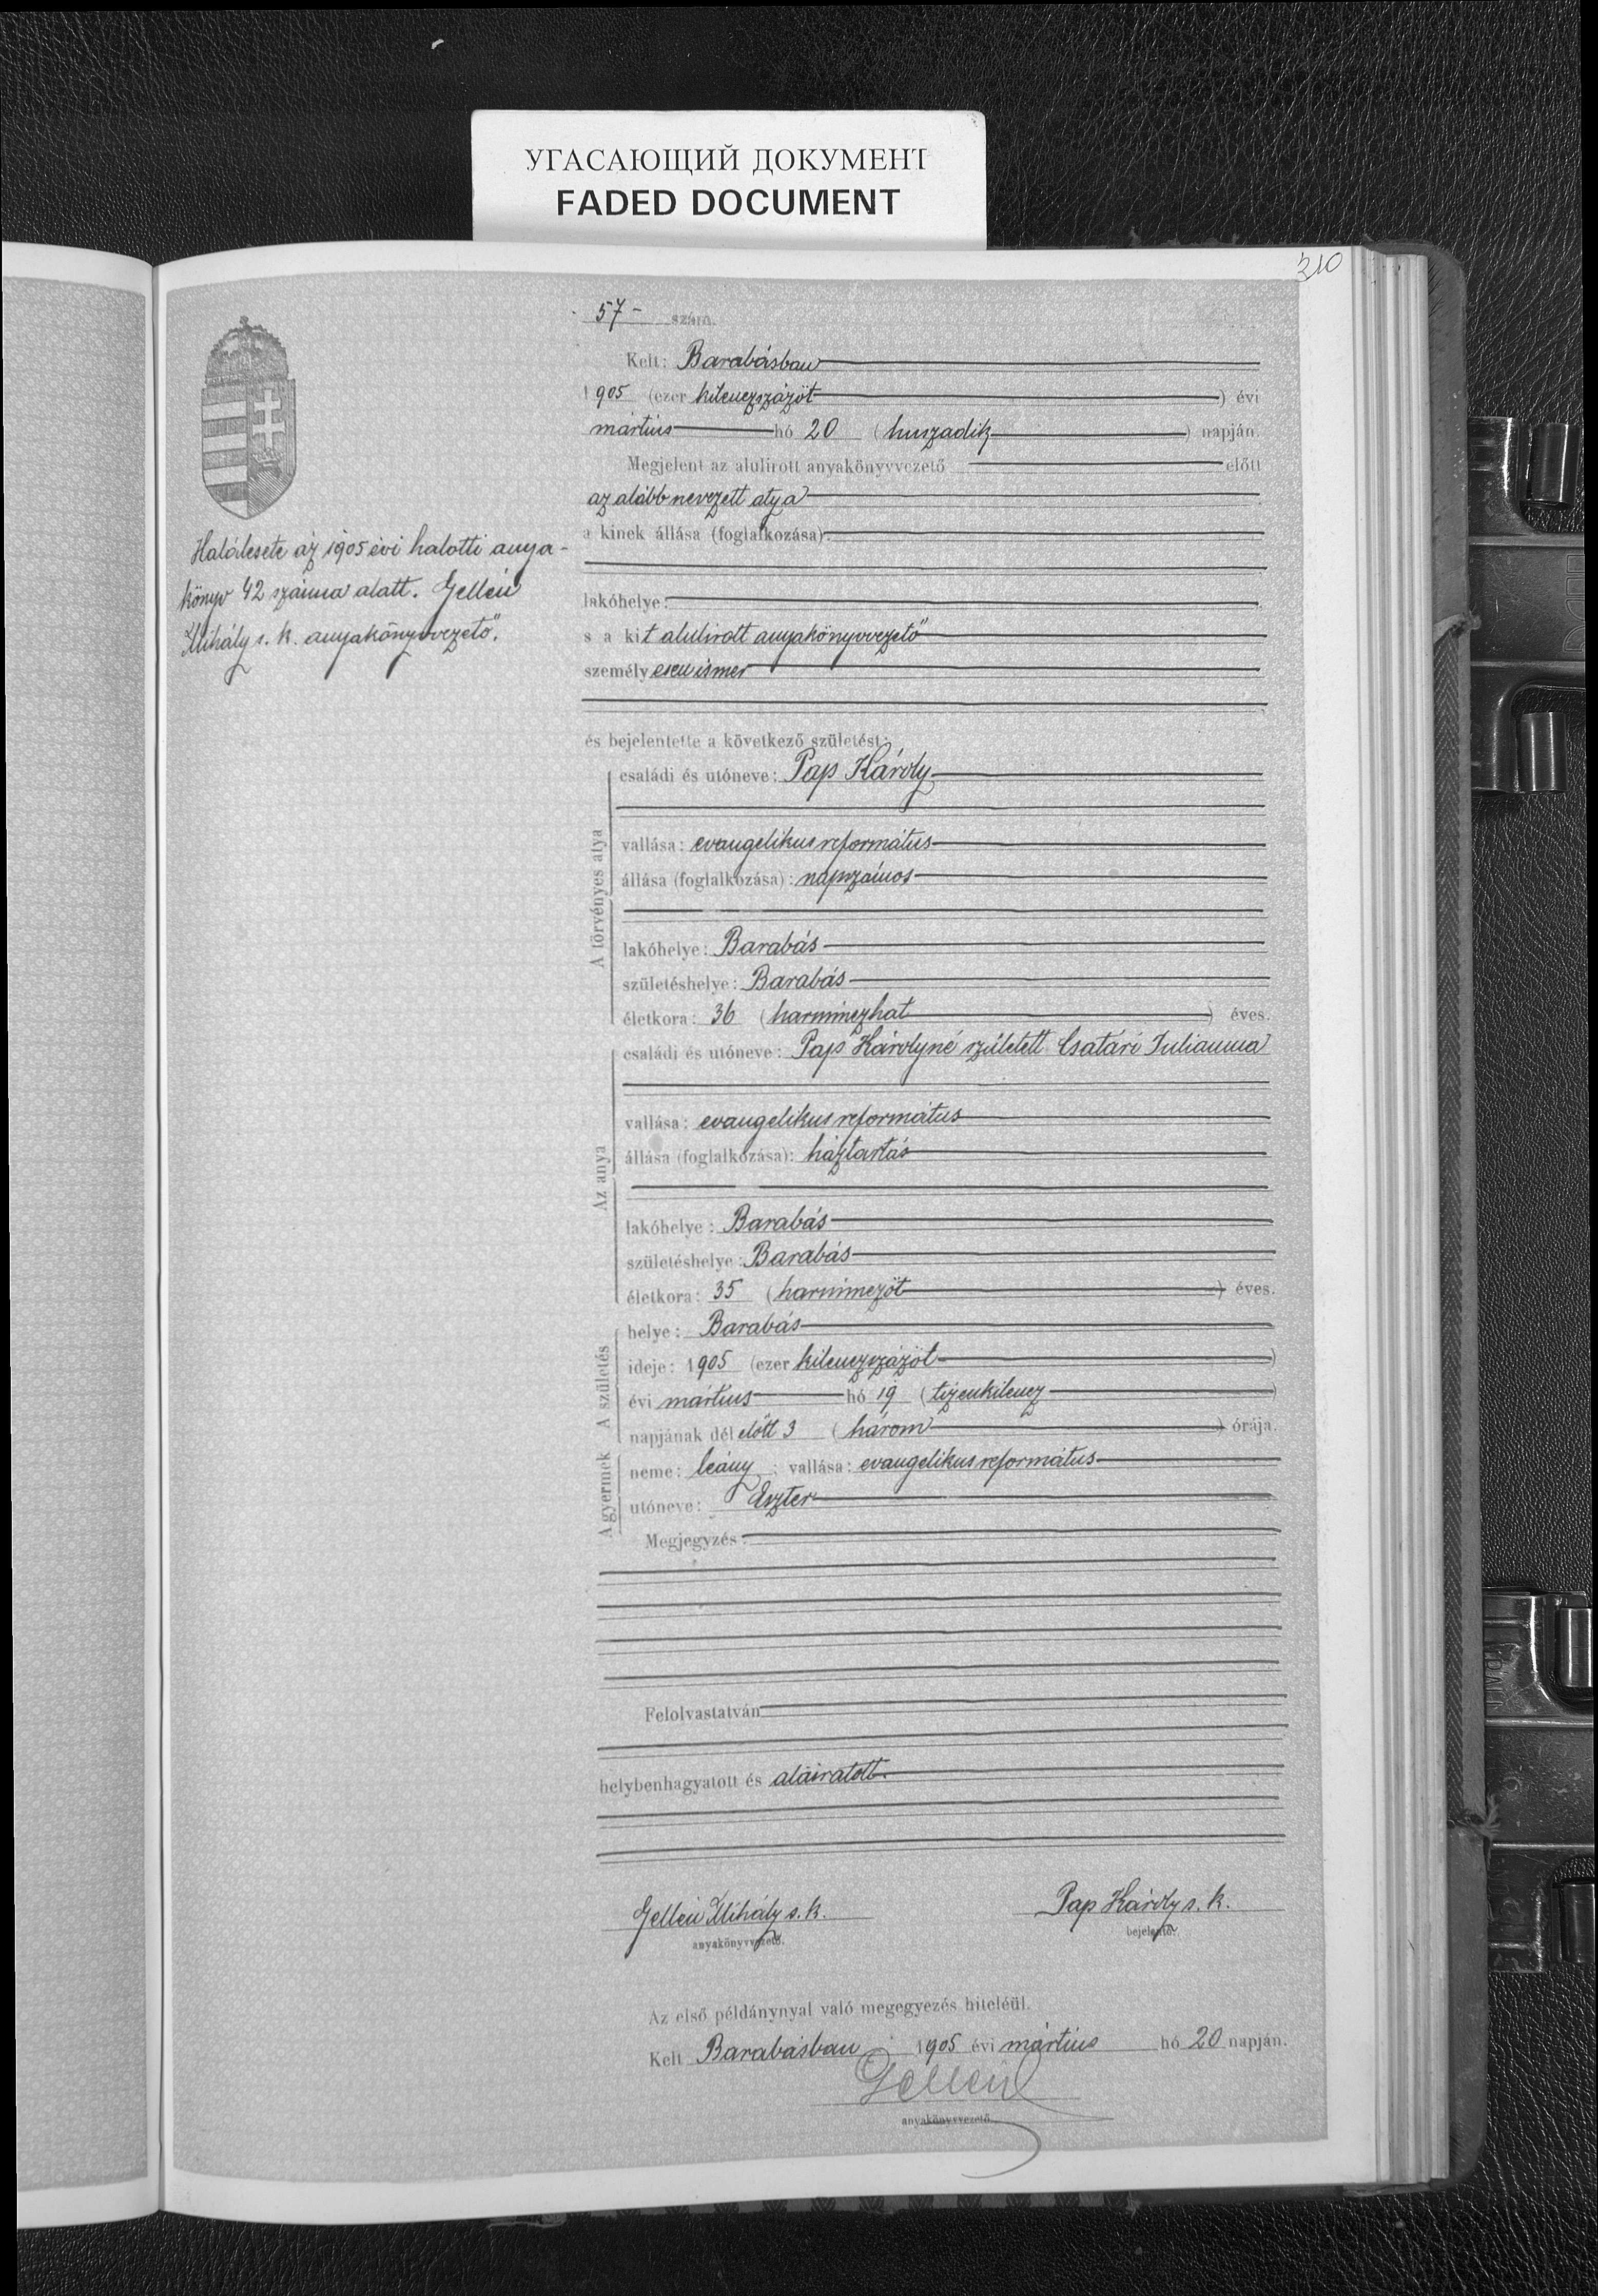 УГАСАЮЩИЙ ДОКУМЕНТ
FADED DOCUMENT
210
57 - szám.
Kelt: Barabásban
1905 (ezer kilenczszázöt) évi
mártius hó 20 (huszadik) napján.
Megjelent az alulirott anyakönyvvezető előtt
az alább nevezett atya
a kinek állása (foglalkozása):
lakóhelye:
s a kit alulirott anyakönyvvezető
személyesen ismer
és bejelentette a következő születést:
A törvényes atya
családi és utóneve: Pap Károly
vallása: evangelikus református
állása (foglalkozása): napszámos
lakóhelye: Barabás
születéshelye: Barabás
életkora: 36 (harminczhat) éves.
Az anya
családi és utóneve: Pap Károlyné született Csatári Julianna
vallása: evangelikus református
állása (foglalkozása): háztartás
lakóhelye: Barabás
születéshelye: Barabás
életkora: 35 (harminczöt) éves.
A születés
helye: Barabás
ideje: 1905 (ezer kilenczszázöt)
évi mártius hó 19 (tizenkilencz)
napjának dél előtt 3 (három) órája.
A gyermek
neme: leány; vallása: evangelikus református
utóneve: Eszter
Megjegyzés:
Felolvastatván
helybenhagyatott és aláiratott.
Gellén Mihály s. k.
anyakönyvvezető.
Pap Károly s. k.
bejelentő.
Az első példánynyal való megegyezés hiteléül.
Kelt Barabásban 1905 évi mártius hó 20 napján.
Gellén
anyakönyvvezető.
Halálesete az 1905 évi halotti anya-
könyv 42 száma alatt. Gellén
Mihály s. k. anyakönyvvezető.